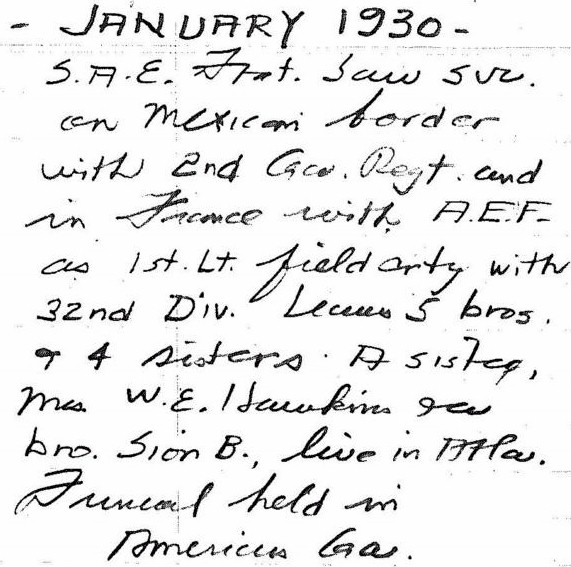 - JANUARY 1930 -
S.A.E. Frat. Saw svc.
on Mexican border
with 2nd Ga. Regt. and
in France with A.E.F.
as 1st. Lt. field arty with
32nd Div. Leaves 5 bros.
& 4 sisters. A sister,
Mrs. W.E. Hawkins &
bro. Sion B., live in Atla.
Funeral held in
Americus Ga.